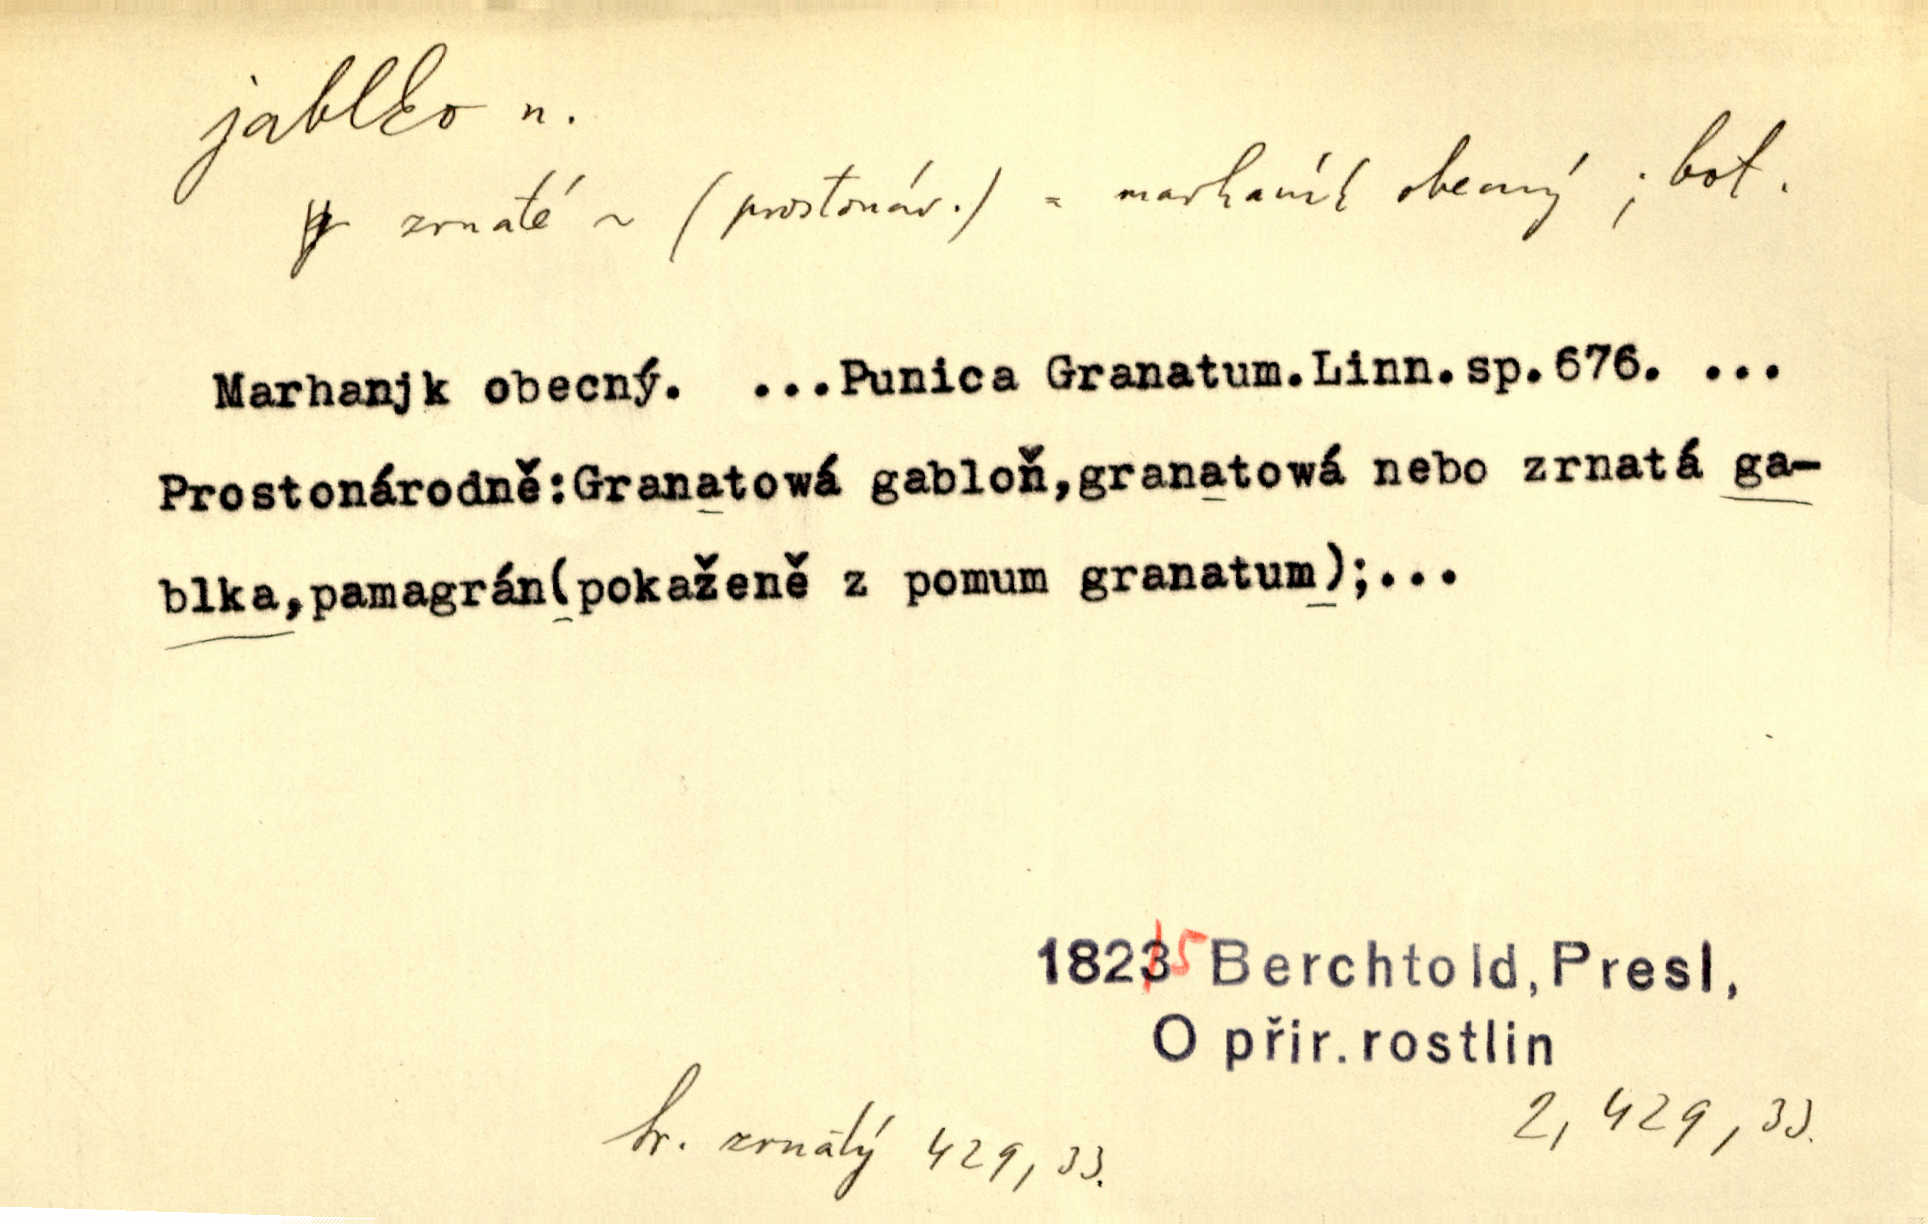 jablko n.
zrnaté ~ (prostonár.) = marhaník obecný ; bot.
Marhanjk obecný. ...Punica Granatum.Linn.sp.676. ...
Prostonárodně:Granatowá gabloň,granatowá nebo zrnatá ga-
blka,pamagrán(pokaženě z pomum granatum);...
1823 5 Berchtold, Presl,
O přir. rostlin
2, 429, 33.
sr. zrnatý 429, 33.